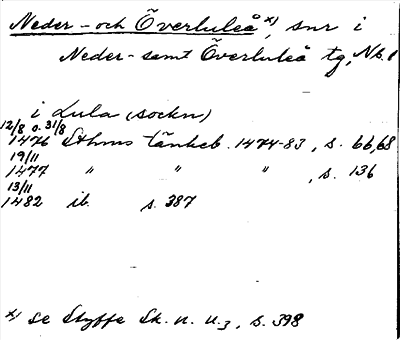 Neder- och Överluleå x), snr i
Neder- samt Överluleå tg, Nb. l
i Lula (sockn)
12/8 o. 31/8
1476 Sthms tänkeb. 1474-83, s. 66,68
19/11
1477 " " " , s. 136
13/11
1482 ib. s. 387
x) se Styffe Sk. n. u.3, s. 398